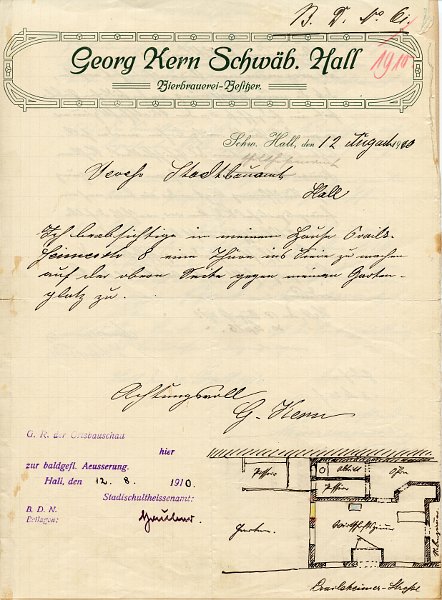 B. D. No 6.
1910
Georg Kern Schwäb. Hall
Bierbrauerei-Besitzer.
Schw. Hall, den 12 August 1910
Verehr Stadtbauamt
Hall
Ich beabsichtige in meinem Hause Crails-
heimerstr 8 eine Thüre ins Freie zu machen
auf der obern Seite gegen meinen Garten-
platz zu.
Achtungsvoll
G. Kern
G. R. der Ortsbauschau
hier
zur baldgefl. Aeusserung.
Hall, den 12. 8. 1910.
Stadtschultheissenamt:
B. D. N.
Beilagen:
Abtritt
Garten
Wirthschaftszimmer
Crailsheimer-Straße